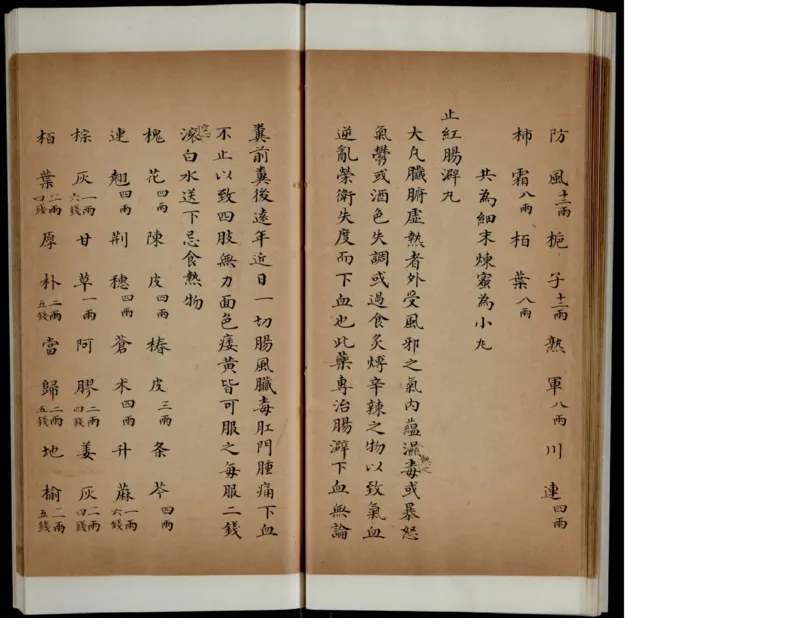 防風十二兩梔子十二兩熟軍八兩川連四兩
柿霜八兩柏葉八兩
共為細末煉蜜為小丸
止紅腸澼丸
大凡臟腑虛熱者外受風邪之氣內蘊濕毒或暴怒
氣鬱或酒色失調或過食炙煿辛辣之物以致氣血
逆亂榮衛失度而下血也此藥專治腸澼下血無論
糞前糞後遠年近日一切腸風臟毒肛門腫痛下血
不止以致四肢無力面色痿黃皆可服之每服二錢
滾白水送下忌食熱物
槐花四兩陳皮四兩椿皮三兩条芩四兩
連翹四兩荆穗四兩蒼术四兩升蔴一兩六錢
棕灰一兩六錢甘草一兩阿膠二兩四錢姜灰二兩四錢
栢葉二兩四錢厚朴二兩五錢當歸二兩五錢地榆二兩五錢